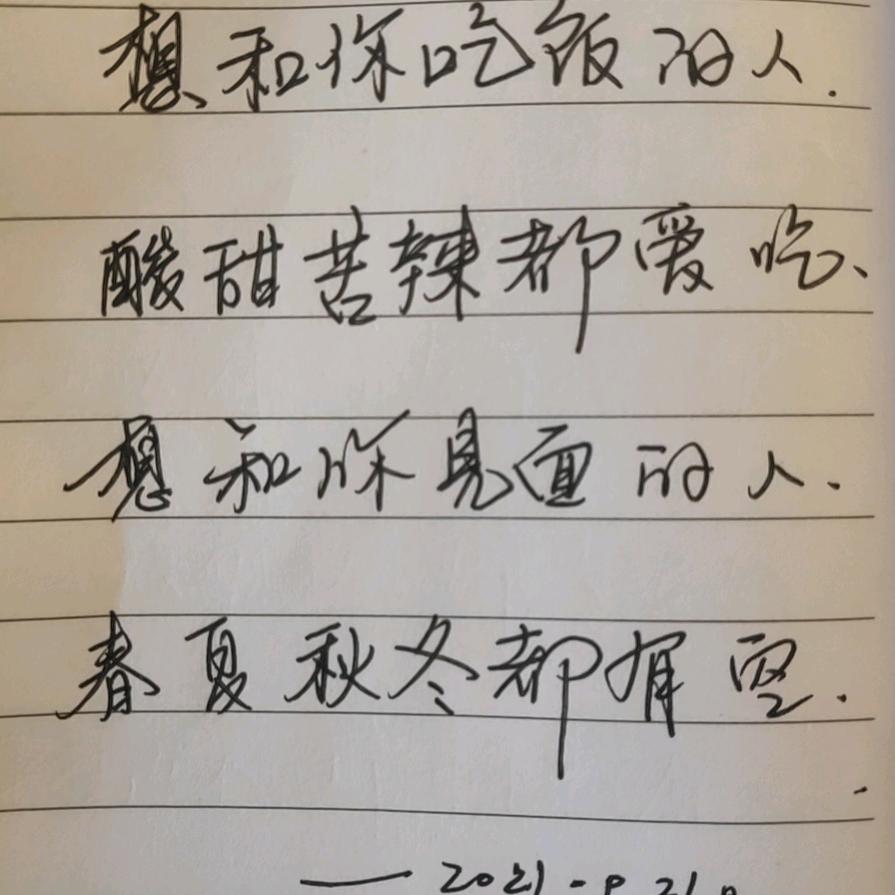 想和你吃饭的人.
酸甜苦辣都爱吃、
想和你见面的人.
春夏秋冬都有空.
—— 2021 -